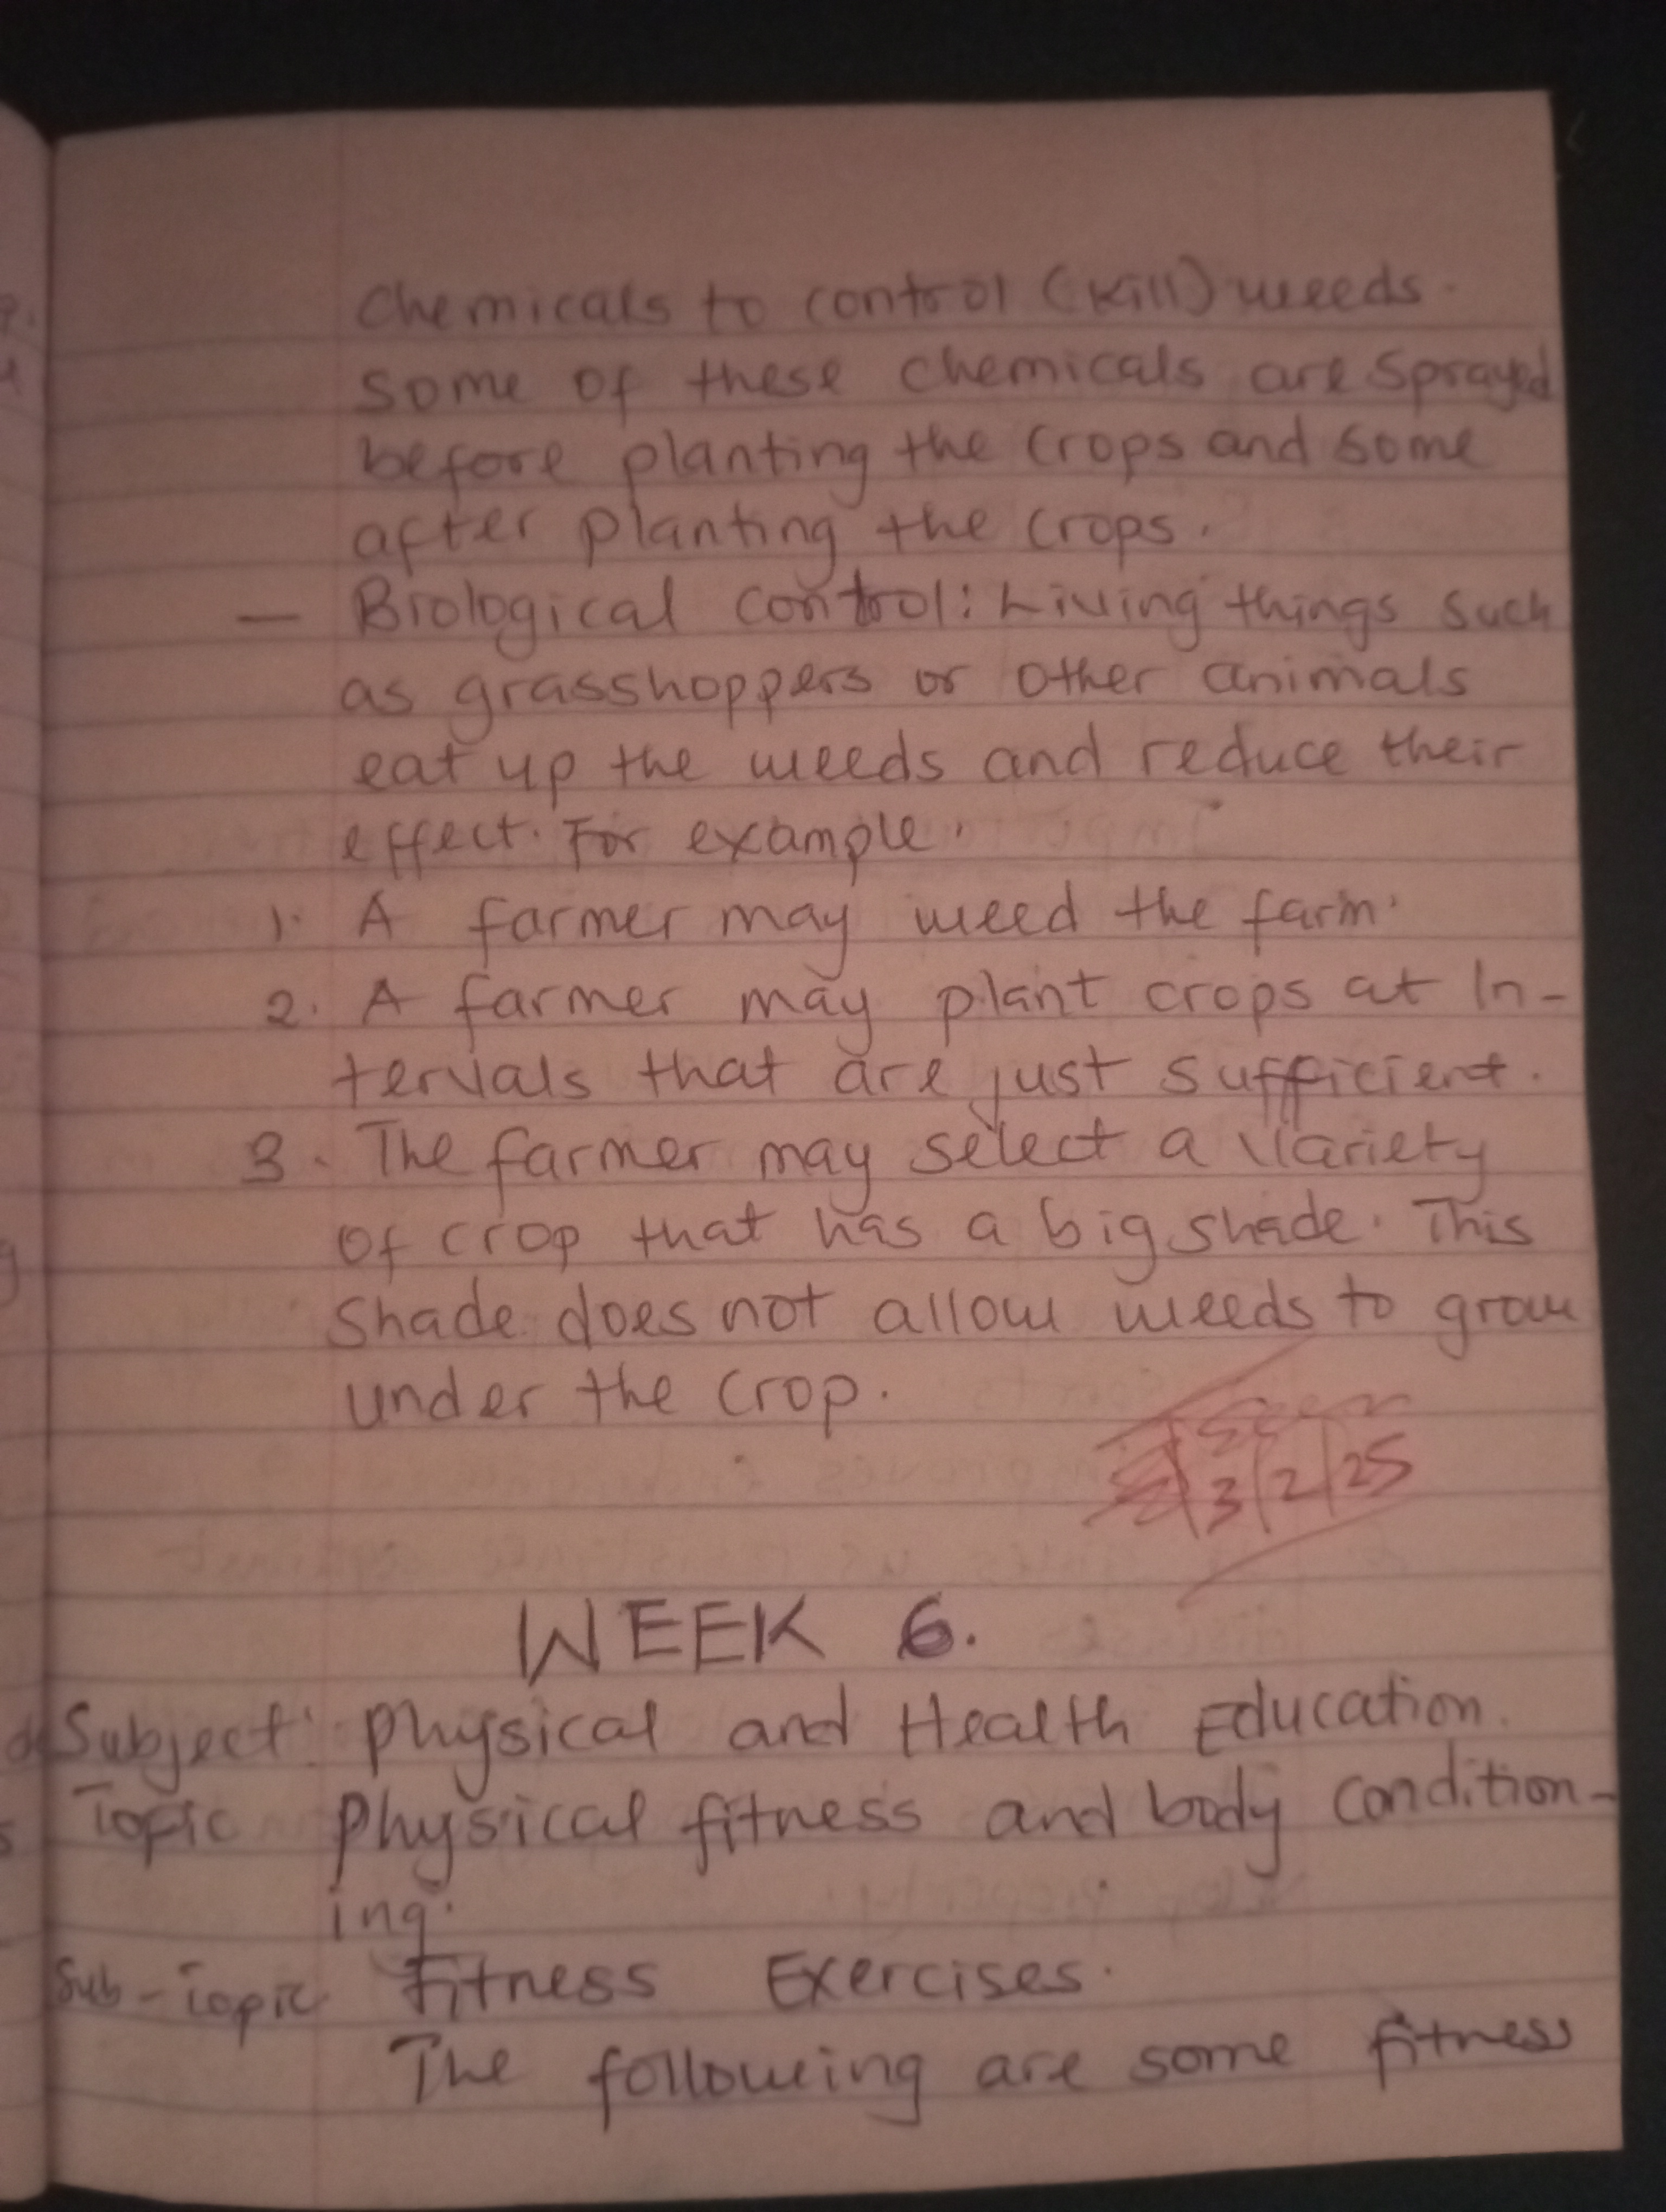 Chemicals to control (kill) weeds.
Some of these chemicals are sprayed
before planting the crops and some
after planting the crops.
— Biological control: Living things such
as grasshoppers or other animals
eat up the weeds and reduce their
effect. For example.
1. A farmer may weed the farm.
2. A farmer may plant crops at In-
tervals that are just sufficient.
3. The farmer may select a variety
of crop that has a big shade. This
shade does not allow weeds to grow
under the crop.
Seen
3/2/25
WEEK 6.
Subject: Physical and Health Education.
Topic Physical fitness and body condition-
ing.
Sub-Topic Fitness Exercises.
The following are some fitness